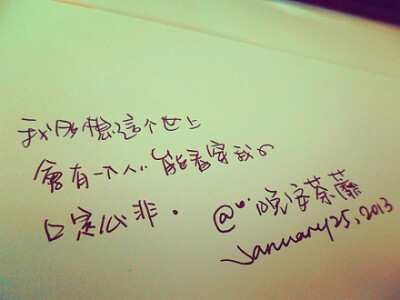 我多想這个世上
會有一个人能看穿我的
口是心非。
@晚安茶蘼
January 25, 2013